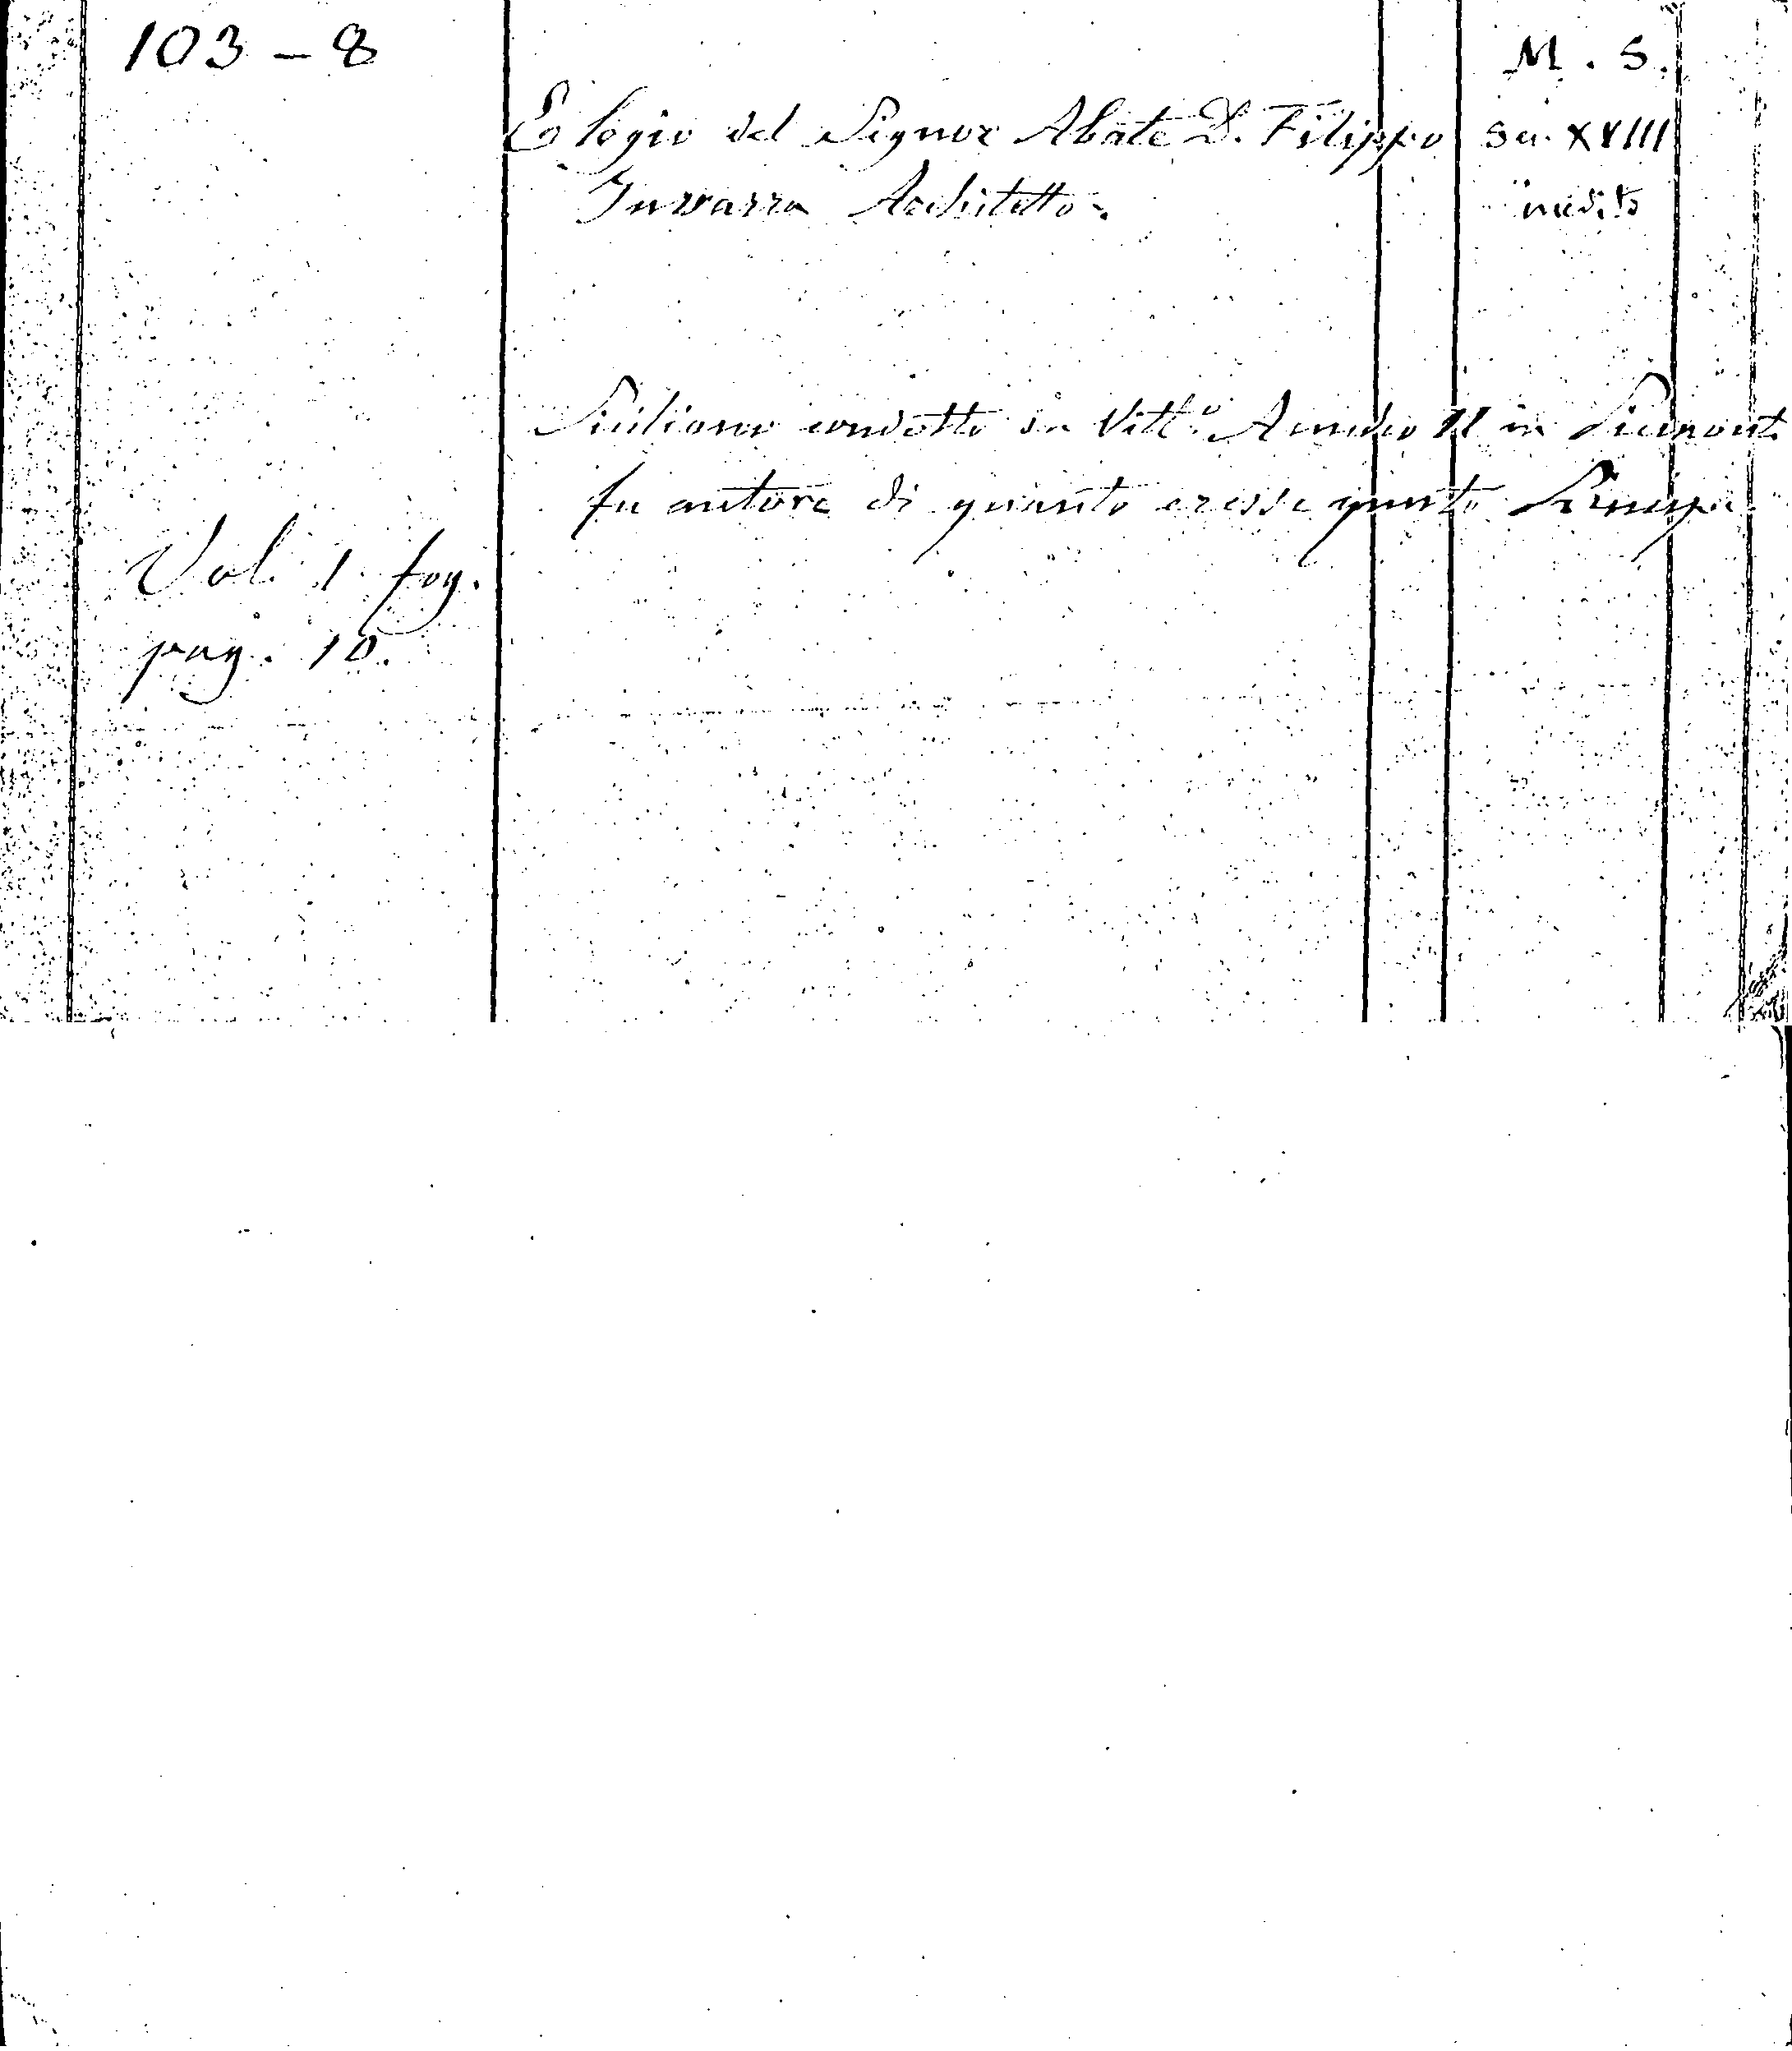 103 - 8
M. S.
Elogio del Signor Abate D. Filippo
Sec. XVIII
Juvarra Architetto.
inedito
Siciliano condotto da Vitt.o Amedeo II in Piemonte
fu autore di quanto eresse questo Principe.
Vol. 1 fog.
pag. 10.